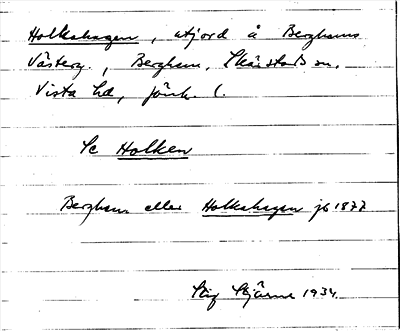 Holkahagen, utjord å Berghems
Västerg., Berghem, Skärstads sn,
Vista hd, Jönk. l.
Se Holken
Berghem eller Holkahagen jb 1877
Stig Stjärne 1934.